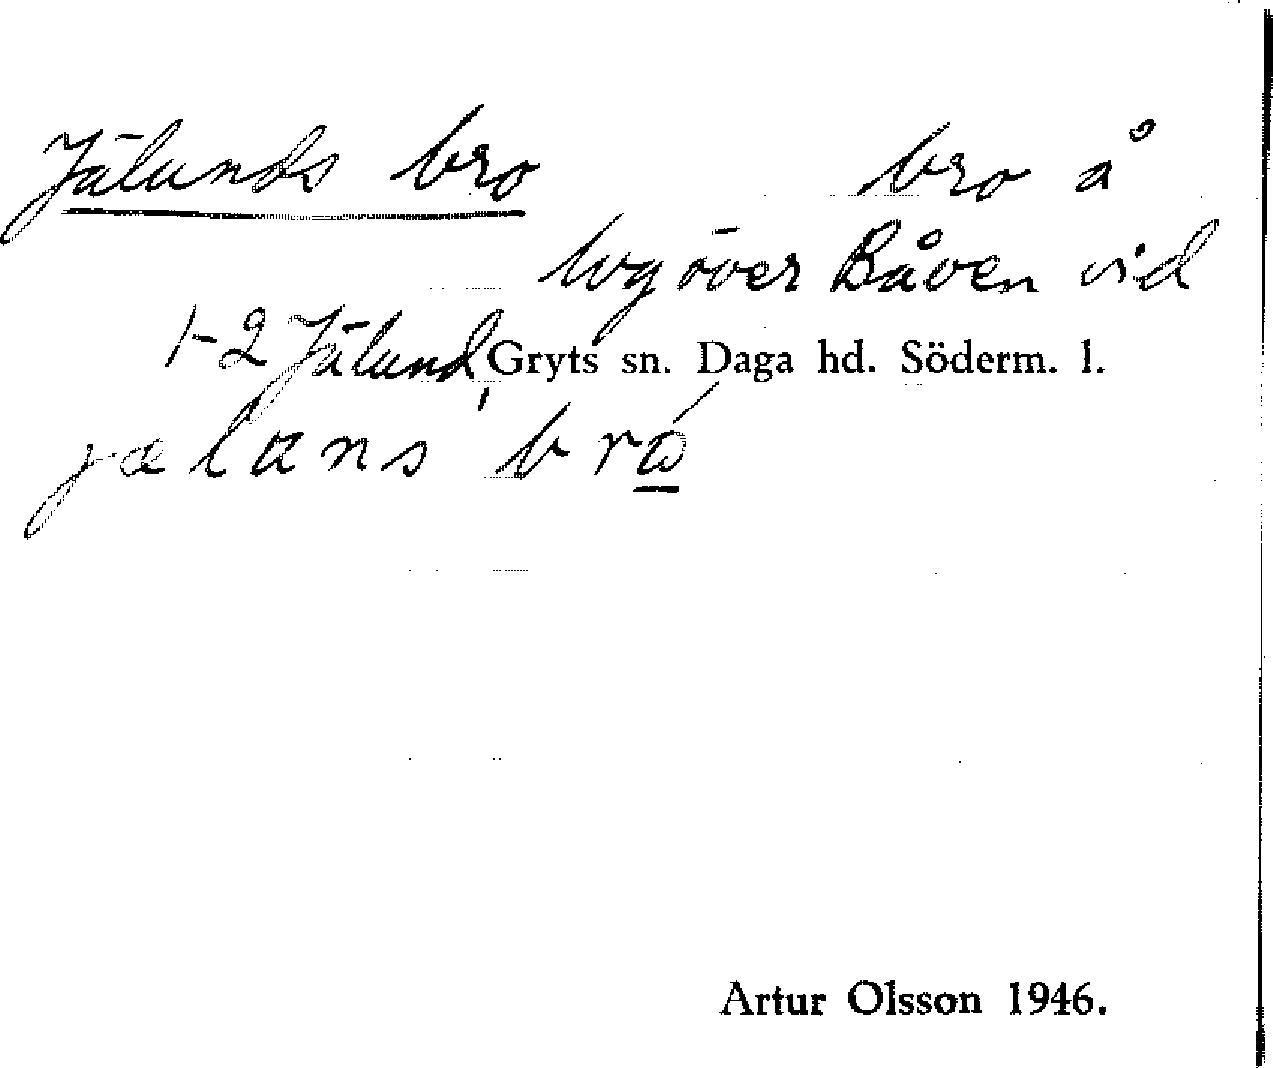 Jälunds bro bro å
lvg över Båven vid
1-2 Jälund, Gryts sn. Daga hd. Söderm. l.
jælans bró
Artur Olsson 1946.